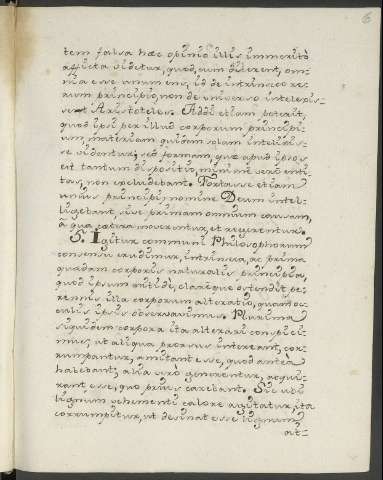 6
tem falsa hæc opinio illis immeritò
afficta videtur, quod, cum dicerent, om-
nia esse unum ens, id de intrinseco re-
rum principio, non de universo intelexis-
set Aristoteles. Addi etiam poterit,
quod ipsi per illud corporum principi-
um, materiam quidem solam intelixis-
se videntur; sed formam, quæ apud ipsos
erit tantum dispositio, minimè verò enti-
tas, non excludebant. Fortasse etiam
unius principij nomine Deum intel-
ligebant, sive primam omnium causam,
à qua cætera moverentur, et regerentur.
5. Igitur communi Philosophorum
consensu erudimur, intrinseca, ac prima
quædam corporis naturalis principia,
quod ipsum evidè, clarèque ostendit pe-
rennis illa corporum alteratio, quam o-
culis ipsis observavimus. Plurima
siquidem corpora ita alterari conspici-
mus, ut aliqua prorsus intereant, cor-
rumpantur, amittant esse, quod anteà
habebant; alia verò generentur, acqui-
rant esse, quo prius carebant. Sic ubi
lignum vehementi calore agitatur, ita
corrumpitur, ut desinat esse lignum,
at-